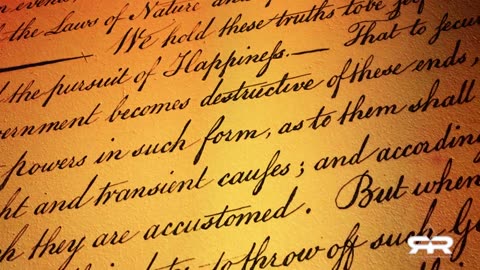 the Laws of Nature and
We hold these truths to be
the pursuit of Happineſs. — That to secu
ernment becomes destructive of these ends,
powers in such form, as to them shall
ht and transient cauſes; and according
h they are accustomed. But when
to throw off such